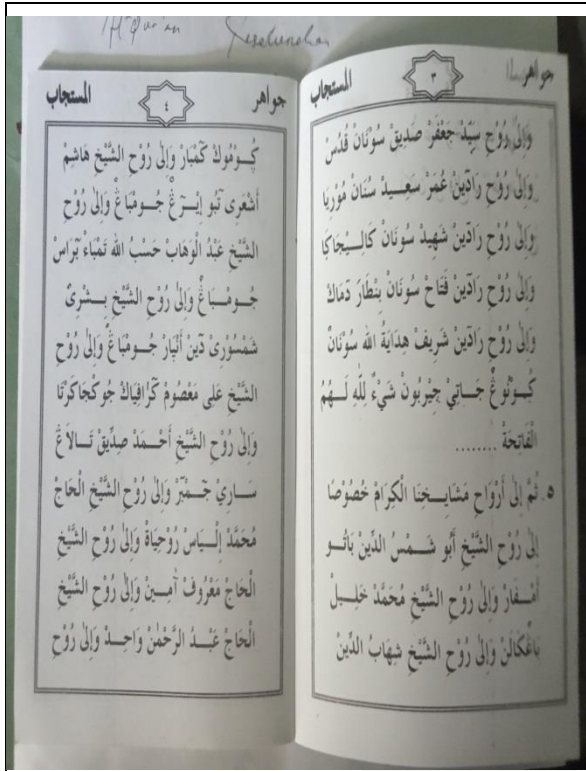 جواهر ٣ المستجاب
وَإِلَى رُوْحِ سَيِّدْ جَعْفَرْ صَدِيقْ سُوْنَانْ قُدُسْ
وَإِلَى رُوْحِ رَادَيْنْ عُمَرْ سَعِـيـدْ سُنَانْ مُوْرِيَا
وَإِلَى رُوْحِ رَادَيْنْ شَهِيدْ سُونَانْ كَالِـيْجَاكَا
وَإِلَى رُوْحِ رَادَيْنْ فَتَاحْ سُوْنَانْ بِنْطَارَ دَمَاكْ
وَإِلَى رُوْحِ رَادَيْنْ شَرِيفْ هِدَايَةُ الله سُوْنَانْ
كُـوْنُوْغْ جَـاتِيْ چِيْرِبُونْ شَيْءٌ لِلّٰهِ لَـهُمُ
الْفَاتِحَةْ ........
٥. ثُمَّ إِلَى أَرْوَاحِ مَشَايِـخِنَا الْكِرَامْ خُصُوْصًا
إِلَى رُوْحِ الشَّيْخِ أَبُو شَـمْسُ الدِّيْنْ بَاتُـو
أَمْـفَارْ وَإِلَى رُوْحِ الشَّيْخِ مُحَمَّدْ خَلِـيـلْ
بَاغْكَالَنْ وَإِلَى رُوْحِ الشَّيْخِ شِهَابُ الدِّيْنْ
جواهر ٤ المستجاب
كُـوْمُوكْ كَمْبَارْ وَإِلَى رُوْحِ الشَّيْخِ هَاشِمْ
أَشْعَرِى تَبُو إِيْـرَغْ جُـومْبَاغْ وَإِلَى رُوْحِ
الشَّيْخِ عَبْدُ الْوَهَابْ حَسْبُ الله تَمْبَاءْ بَرَاسْ
جُـومْـبَاغْ وَإِلَى رُوْحِ الشَّيْخِ بِـشْرِىْ
شَمْسُورِىْ دَيْنْ أَنْيَارْ جُـومْبَاغْ وَإِلَى رُوْحِ
الشَّيْخِ عَلِى مَعْصُومْ كَرَافِيَاكْ جُوكْجَاكَرْتَا
وَإِلَى رُوْحِ الشَّيْخِ أَحْـمَدْ صِدِّيقْ تَـالَاغْ
سَـارِيْ جَـمْبَرْ وَإِلَى رُوْحِ الشَّيْخِ الْحَاجْ
مُحَمَّدْ إِلْـيَاسْ رُوْحِيَاةْ وَإِلَى رُوْحِ الشَّيْخِ
الْحَاجْ مَعْرُوفْ آمِـيـنْ وَإِلَى رُوْحِ الشَّيْخِ
الْحَاجْ عَبْـدُ الرَّحْمٰنْ وَاحِـدْ وَإِلَى رُوْحِ